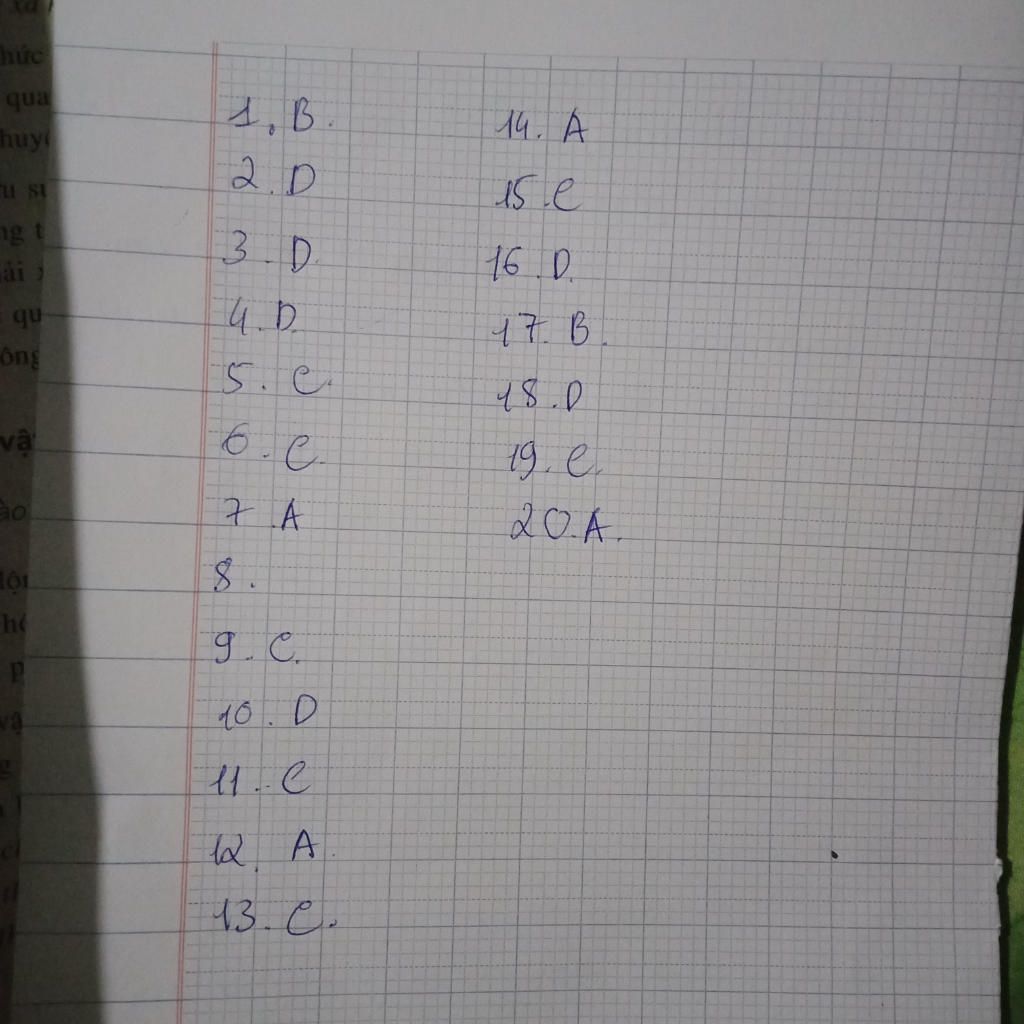 xã
hức
qua
huyể
ng t
ải x
qu
ông
vậ
ào
p
vậ
1. B.
2. D
3. D.
4. D.
5. C.
6. C.
7. A
8.
9. C.
10. D
11. C
12. A.
13. C.
14. A
15. C
16. D.
17. B.
18. D
19. C.
20. A.